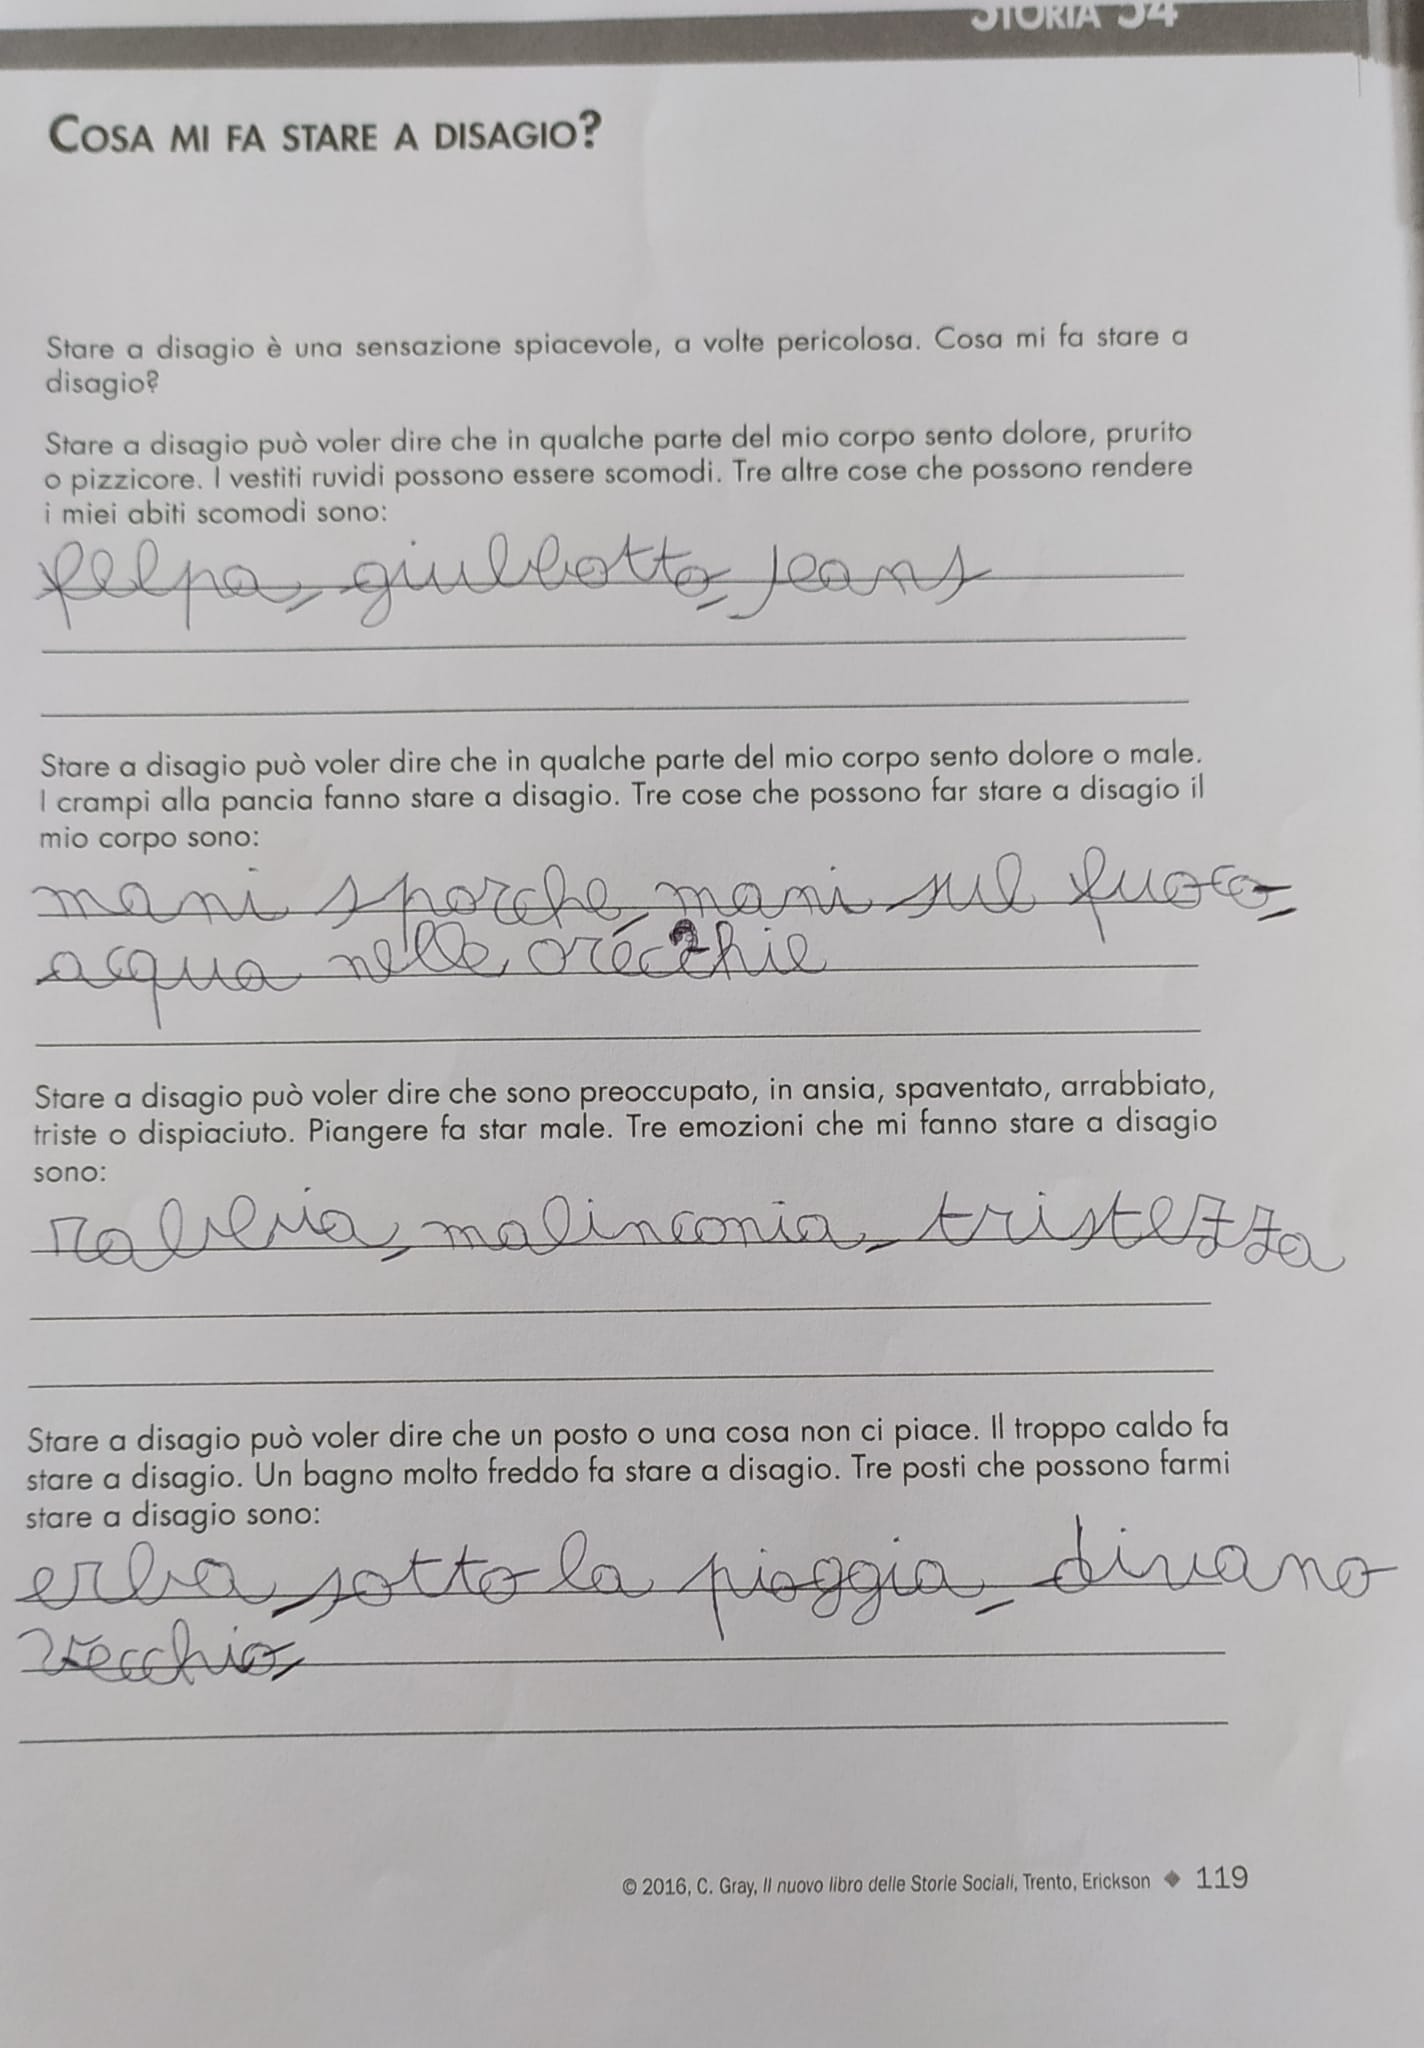 STORIA 54
COSA MI FA STARE A DISAGIO?
Stare a disagio è una sensazione spiacevole, a volte pericolosa. Cosa mi fa stare a
disagio?
Stare a disagio può voler dire che in qualche parte del mio corpo sento dolore, prurito
o pizzicore. I vestiti ruvidi possono essere scomodi. Tre altre cose che possono rendere
i miei abiti scomodi sono:
felpa, giubbotto, jeans
Stare a disagio può voler dire che in qualche parte del mio corpo sento dolore o male.
I crampi alla pancia fanno stare a disagio. Tre cose che possono far stare a disagio il
mio corpo sono:
mani sporche, mani sul fuoco,
acqua nelle orecchie
Stare a disagio può voler dire che sono preoccupato, in ansia, spaventato, arrabbiato,
triste o dispiaciuto. Piangere fa star male. Tre emozioni che mi fanno stare a disagio
sono:
rabbia, malinconia, tristezza
Stare a disagio può voler dire che un posto o una cosa non ci piace. Il troppo caldo fa
stare a disagio. Un bagno molto freddo fa stare a disagio. Tre posti che possono farmi
stare a disagio sono:
erba, sotto la pioggia, divano
vecchio,
© 2016, C. Gray, Il nuovo libro delle Storie Sociali, Trento, Erickson ◆ 119